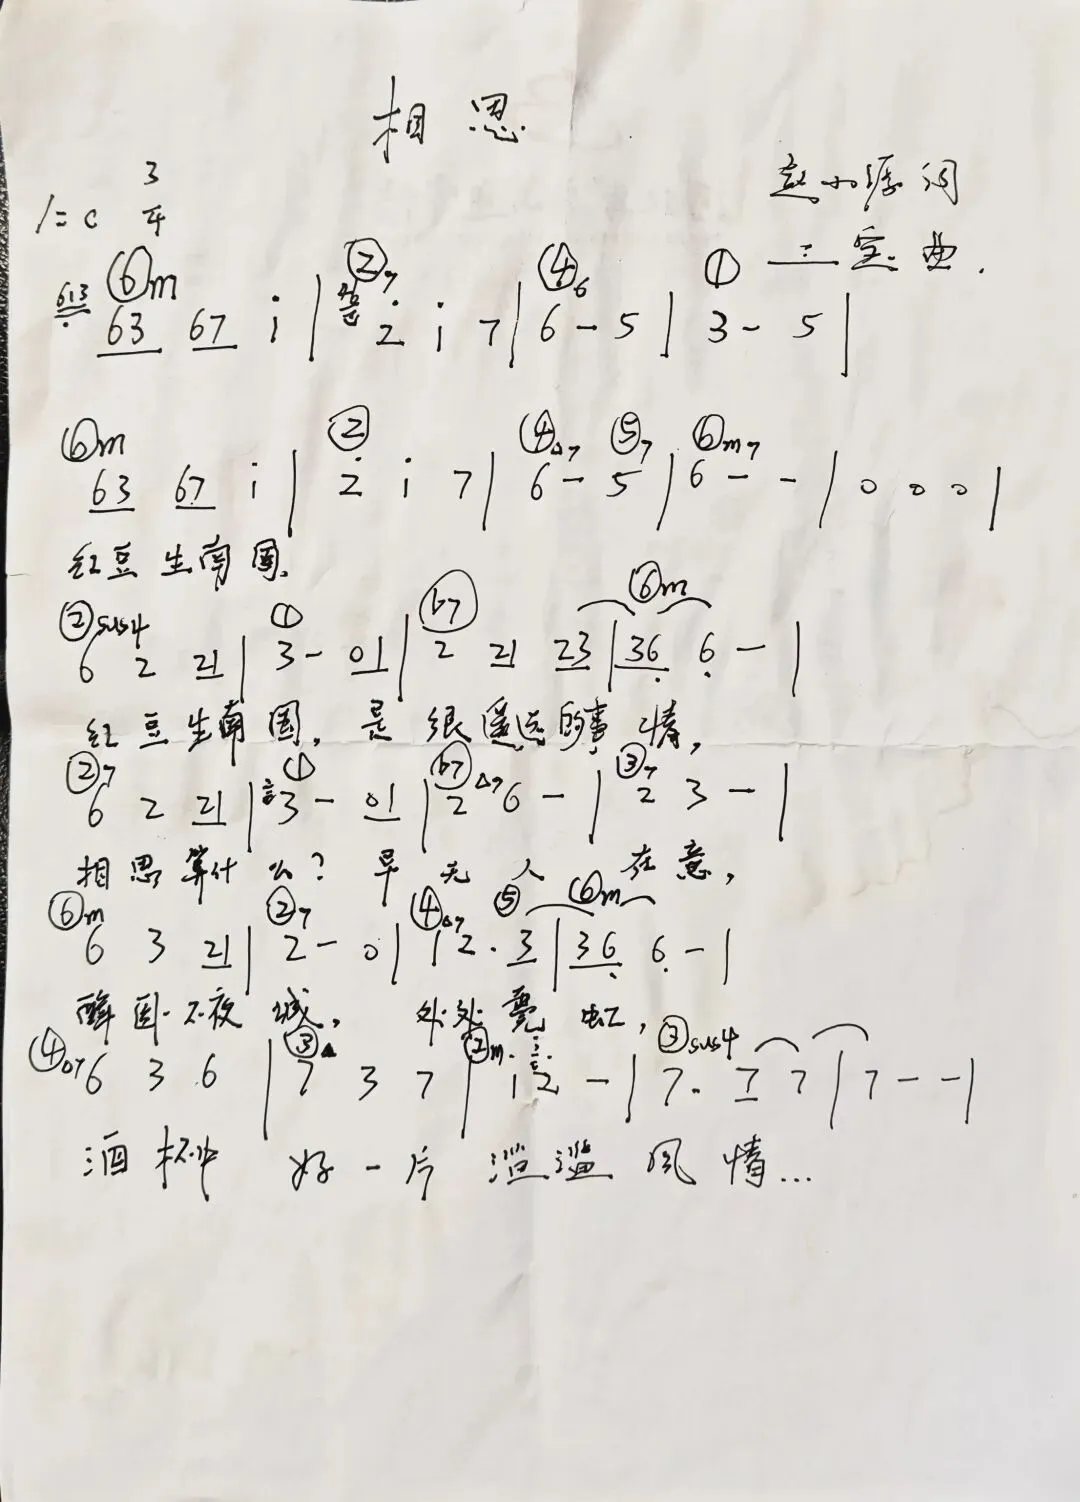 相思
3
1=C 4
赵小源词
三宝曲.
613 ⑥m ②7 ④6 ①
63 67 i | 2̇ i 7 | 6 – 5 | 3 – 5 |
⑥m ② ④△7 ⑤7 ⑥m7
63 67 i | 2̇ i 7 | 6 – 5 | 6 – – | 0 0 0 |
红豆生南国.
②sus4 ① b7 ⑥m
6 2 21 | 3 – 01 | 2 21 23 | 36̣ 6̣ – |
红豆生南国, 是很遥远的事情,
②7 ① b7△7 ③7
6 2 21 | 3 – 01 | 2 6 – | 2 3 – |
相思算什么? 早无人在意,
⑥m ②7 ④△7 ⑤ ⑥m
6 3 21 | 2 – 0 | 1 2. 3 | 36̣ 6̣ – |
醉困不夜城, 处处霓虹,
④△7 ③ ②m ③sus4
6 3 6 | 7 3 7 | i 2̇ – | 7. 7 7 | 7 – – |
酒杯中 好一片 滥滥风情...